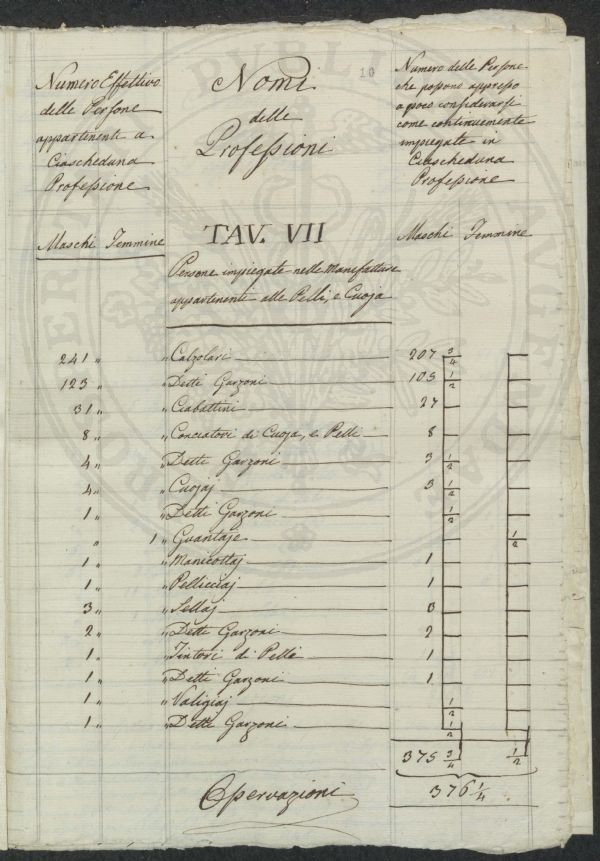 10
Numero Effettivo
delle Persone
appartenenti a
Ciascheduna
Professione
Nomi
delle
Professioni
Numero delle Persone
che possono appresso
a poco considerarsi
come continuamente
impiegate in
Ciascheduna
Professione
Maschi Femmine TAV. VII Maschi Femmine
Persone impiegate nelle Manifatture
appartenenti alle Pelli, e Cuoja
241 " " Calzolari 207 3/4
123 " " Detti Garzoni 105 1/2
31 " " Ciabattini 27
8 " " Conciatori di Cuoja, e Pelli 8
4 " " Detti Garzoni 3 1/2
4 " " Cuojaj 3 1/2
1 " " Detti Garzoni 1/2
" 1 " Guantaje 1/2
1 " " Manicottaj 1
1 " " Pellicciaj 1
3 " " Sellaj 3
2 " " Detti Garzoni 2
1 " " Tintori di Pelle 1
1 " " Detti Garzoni 1
1 " " Valigiaj 1/2
1 " " Detti Garzoni 1/2
375 3/4 1/2
376 1/4
Osservazioni